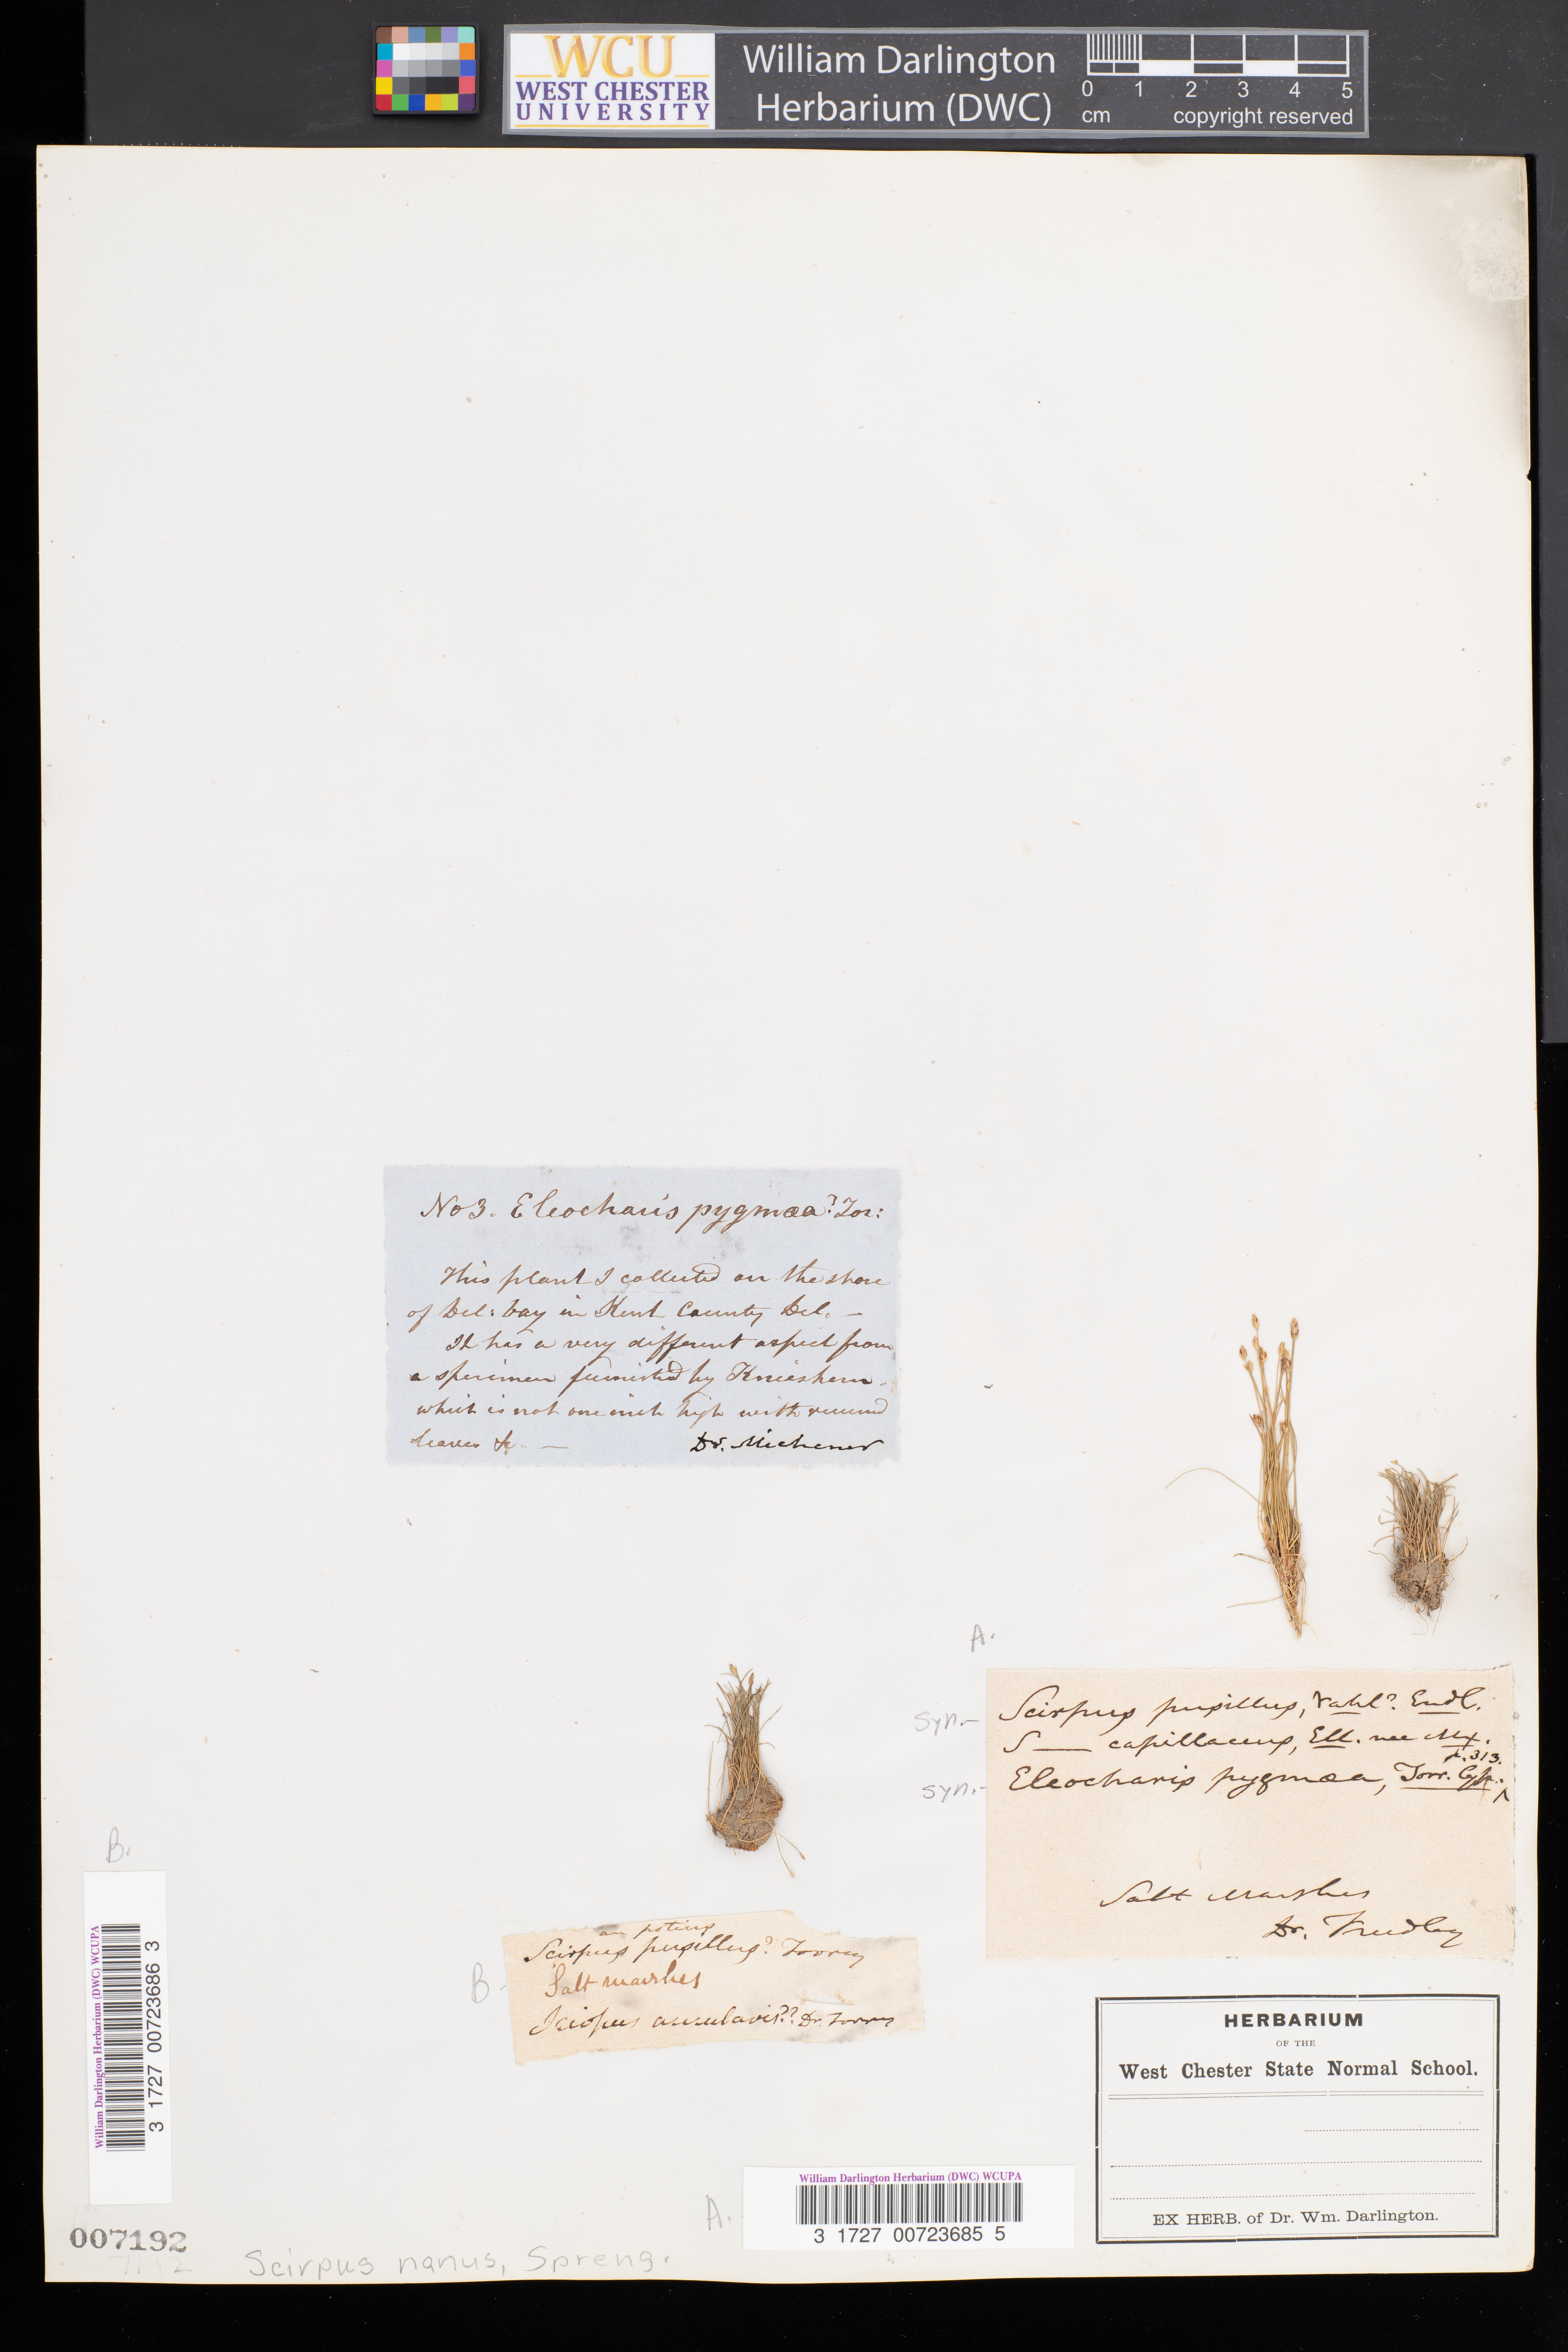 WCU
WEST CHESTER
UNIVERSITY
William Darlington
Herbarium (DWC)
0 1 2 3 4 5
cm copyright reserved
No 3. Eleocharis pygmæa? Tor:
This plant I collected on the shore
of Del: bay in Kent County Del. —
It has a very different aspect from
a specimen furnished by Knieskern.
which is not one inch high with
leaves &c. — Dr. Michener
A.
syn.- Scirpus pusillus, Vahl? Endl.
S— capillaceus, Ell. nec Mx.
p. 313.
syn.- Eleocharis pygmæa, Torr. Cyp. ^
Salt Marshes
Dr.
an potius
B- Scirpus pusillus? Torrey
Salt marshes
Scirpus ?? Dr. Torrey
HERBARIUM
OF THE
West Chester State Normal School.
EX HERB. of Dr. Wm. Darlington.
B.
William Darlington Herbarium (DWC) WCUPA
3 1727 00723686 3
A.
William Darlington Herbarium (DWC) WCUPA
3 1727 00723685 5
007192
7192
Scirpus nanus, Spreng.